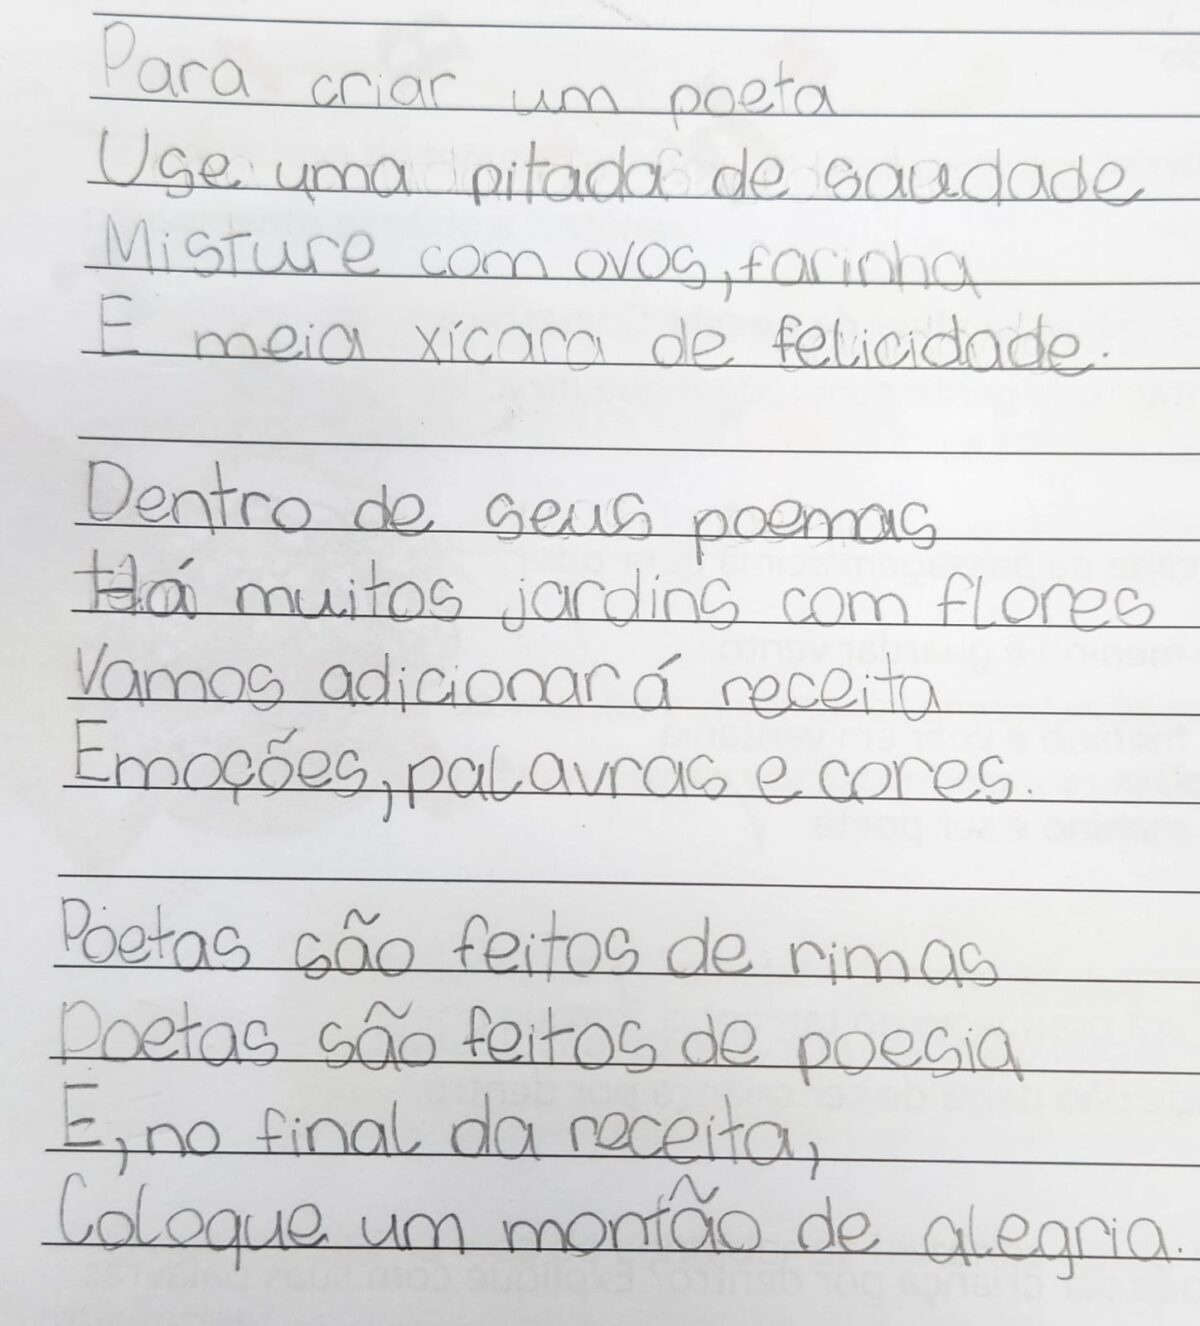 Para criar um poeta
Use uma pitada de saudade
Misture com ovos, farinha
E meia xícara de felicidade.
Dentro de seus poemas
Há muitos jardins com flores
Vamos adicionar á receita
Emoções, palavras e cores.
Poetas são feitos de rimas
Poetas são feitos de poesia
E, no final da receita,
Coloque um montão de alegria.